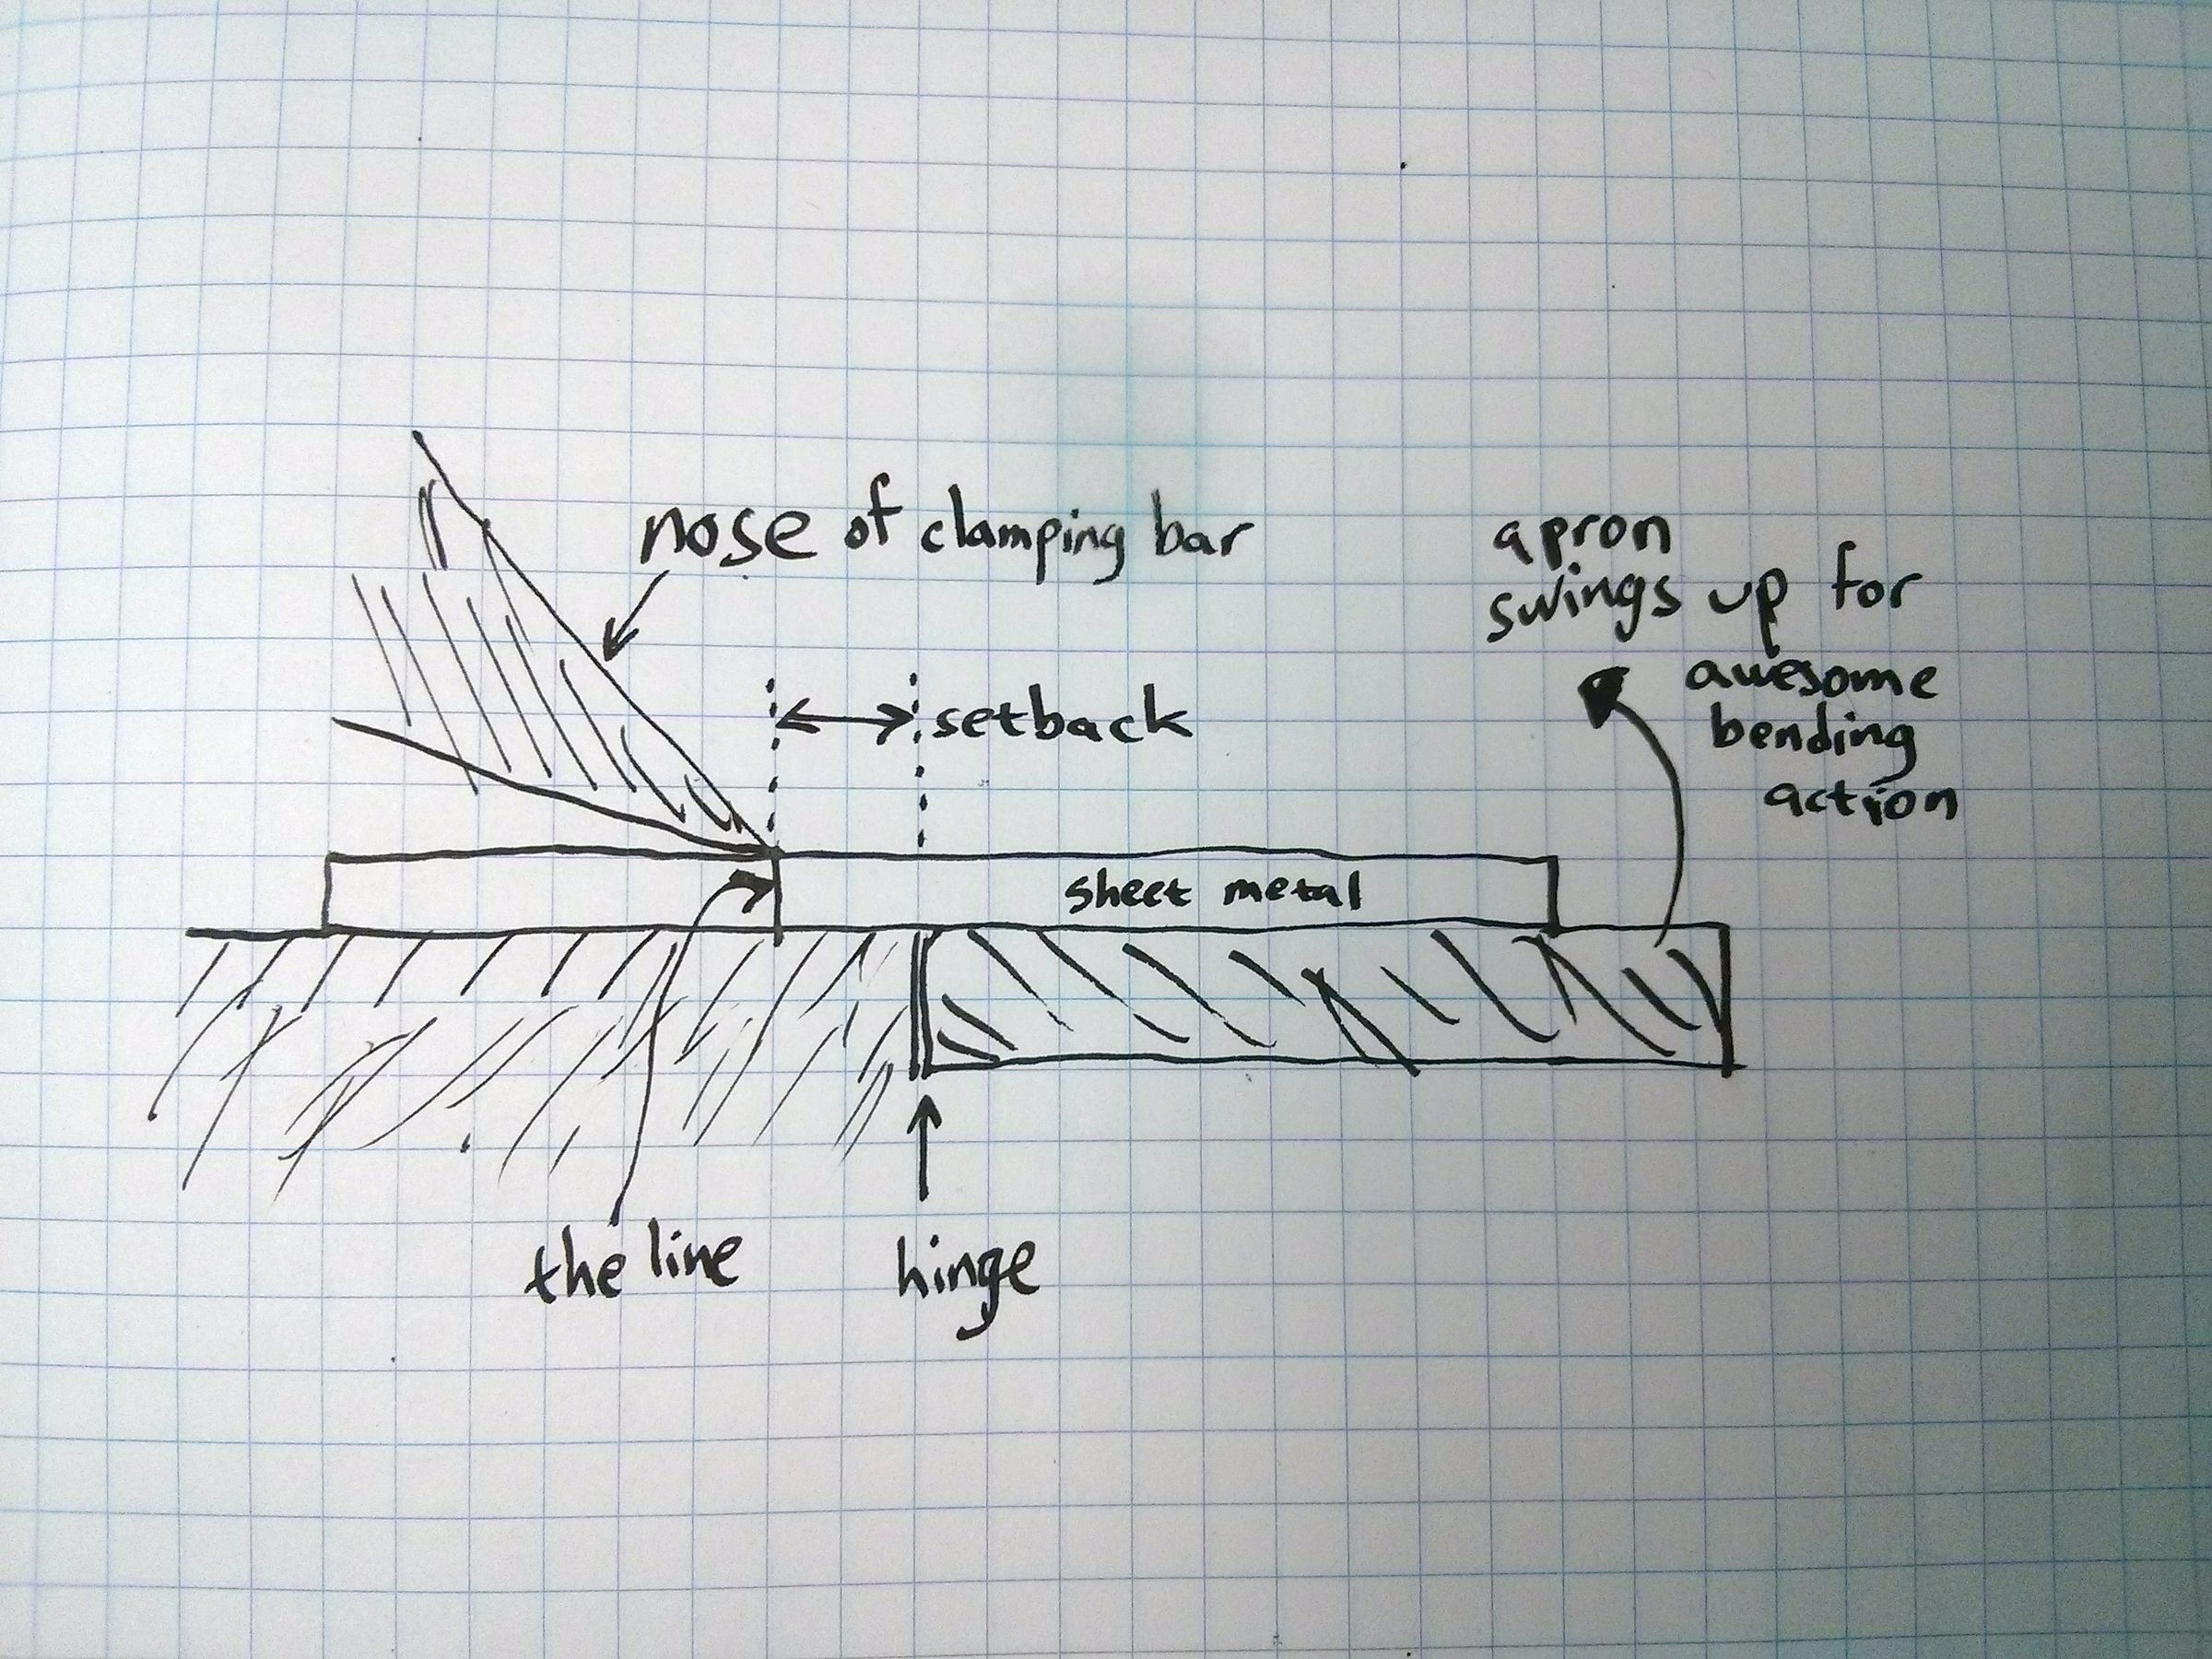 nose of clamping bar
apron
swings up for
awesome
bending
action
setback
sheet metal
the line
hinge